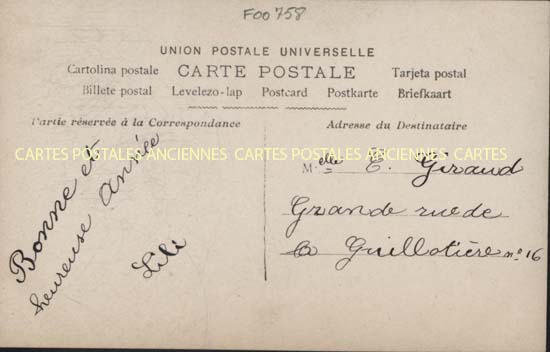 F00758
UNION POSTALE UNIVERSELLE
Cartolina postale CARTE POSTALE Tarjeta postal
Billete postal Levelezo-lap Postcard Postkarte Briefkaart
Partie réservée à la Correspondance
Adresse du Destinataire
CARTES POSTALES ANCIENNES CARTES POSTALES ANCIENNES CARTES
Bonne et
heureuse Année
Lili
Melle E. Giraud
Grande rue de
la Guillotière no 16